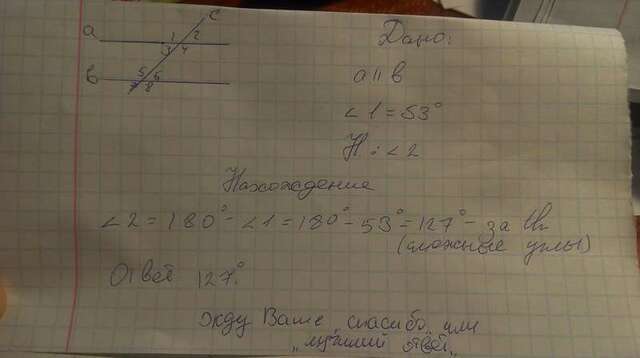 c
a
1 2
3 4
b
5 6
8
Дано:
a || b
∠1 = 53°
Н: ∠2
Нахождение
∠2 = 180° - ∠1 = 180° - 53° = 127° - за
(смежные углы)
Ответ 127°.
жду Ваше "спасибо" или
"лучший ответ"